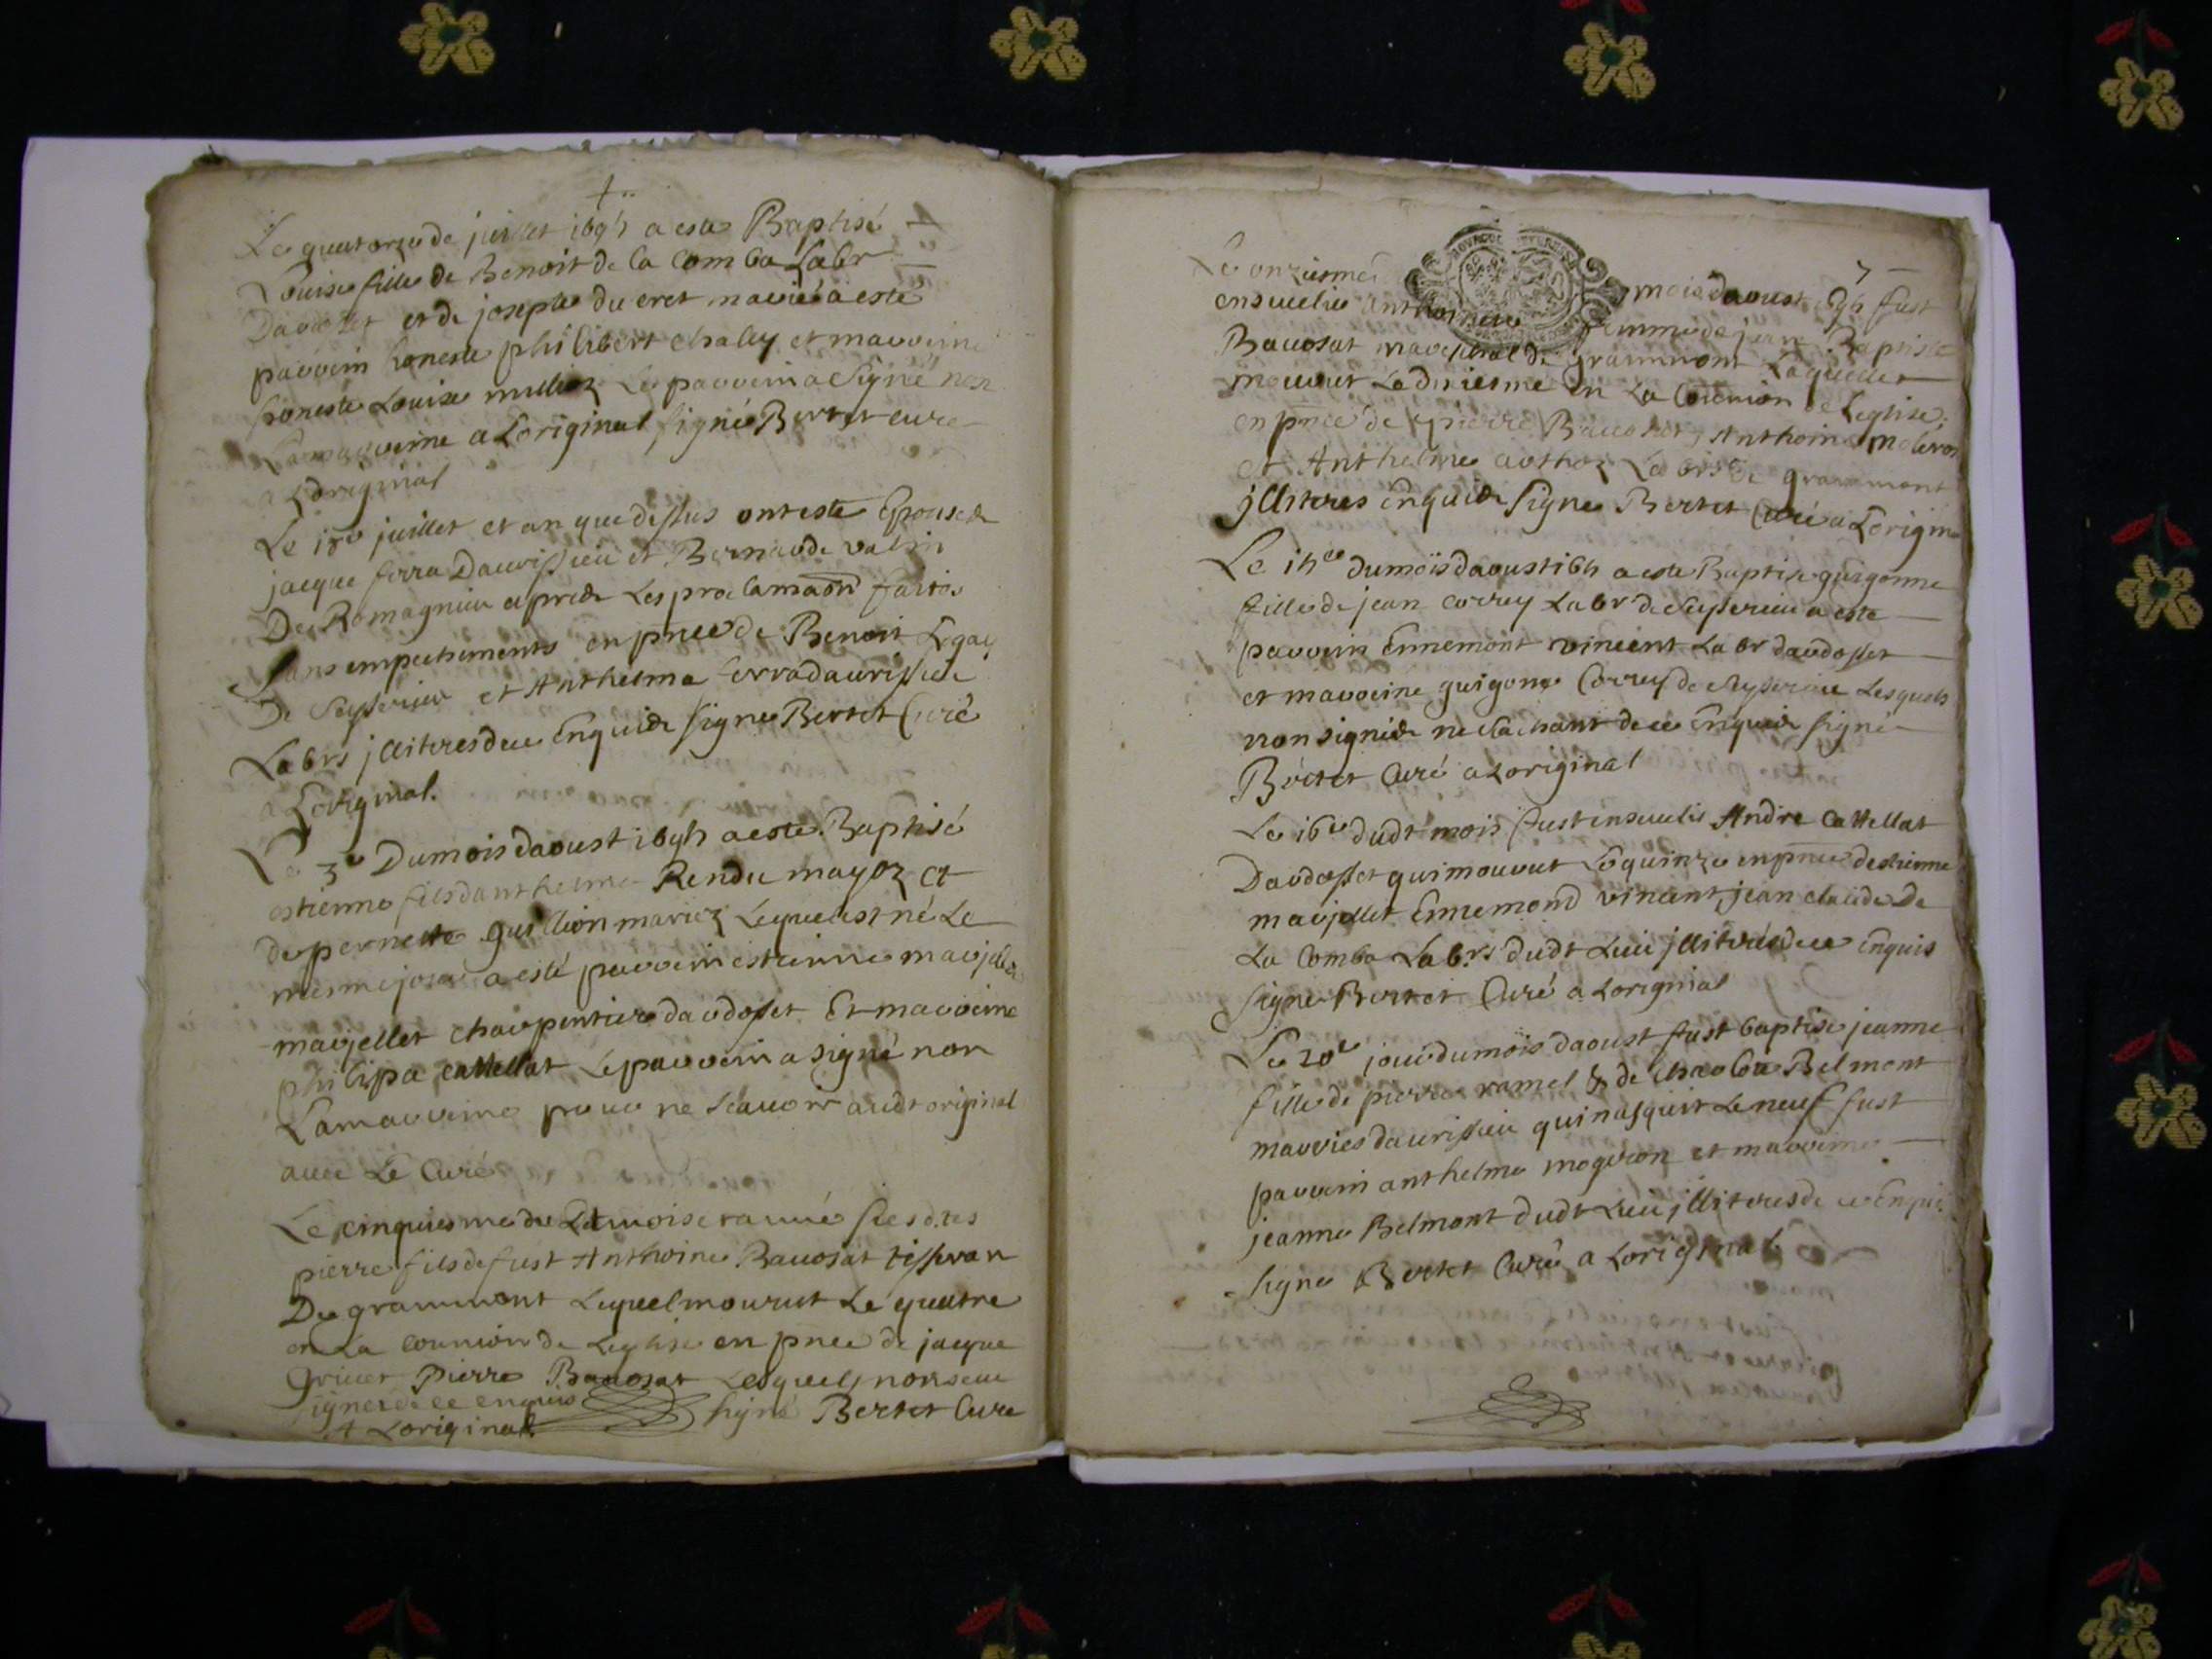 Le quatorze de juillet 1695 a este Baptisé
Louise fille de Benoit de la Comba Labr
Daudosset et de josepte du cret mariés a esté
parrein honeste philibert chaley et marreine
honeste Louise millioz Le parrein a signé non
La marreine a Loriginal signé Bertet curé
a Loriginal
Le 18e juillet et an que dessus ont este Epousés
jacque serra Daurissieu et Bernarde vallin
De Romagnieu apres Les proclamaõn faites
Sans empechements en pnce de Benoit Legay
De Seyserieu et Anthelme serra daurissieu
Labrs jllitresdece Enquis signe Bertet Curé
a Loriginal.
Le 3e Dumois daoust 1695 a este Baptisé
estienne fils danthelme Rendu mayoz et
de pernette guillion mariez Lequel est né Le
mesme jour a esté parrein estienne
marjellet charpentier daudosset Et marreine
philipa cattellat Le parrein a signé non
Lamarreine pour ne scauoir audt original
auec Le Curé
Le cinquiesme du
pierre fils de fust Anthoine Bauosat tisseran
De grammont Lequel mourut Le quatre
en La coõnion de Leglise en pnce de jacque
Griuet pierre Bauosat Lesquels non sceu
signer de ce enquis signé Bertet Cure
A Loriginal.
7
Le onziesme mois daoust 1695 fust
enseuelie anthoinette femme de jean Baptiste
Bauosat mareschal de grammont Laquelle
mourut Le dixiesme en La Coõnion de Leglise
en pnce de pierre Bauosat, Anthoine
et Anthelme Labrs de grammont
jllitres Enquis signe Bertet Curé a Lorigin
Le 15e dumois daoust 1695 a este Baptise guigonne
fille de jean Correy Labr de Seyserieu a este
parrein Ennemont vincent Labr daudosset
et marreine guigone Correy de Seyserieu Lesquels
non signés ne sachant de ce Enquis signé
Bertet Curé a Loriginal
Le 16e dudt mois fust enseueli Andre Cattellat
Daudosset qui mourut Le quinze en pnce destienne
marjellet Ennemond vincent, jean claude De
La Comba Labrs dudt Lieu jllitrés dece Enquis
signe Bertet Curé a Loriginal
Le 20e jour dumois daoust fust baptise jeanne
fille de pierre ramel & de Belmont
marries daurissieu qui nasquit Le neuf fust
parrein anthelme et marreine
jeanne Belmont dudt Lieu jllitres de ce Enquis
signe Bertet Curé a Loriginal